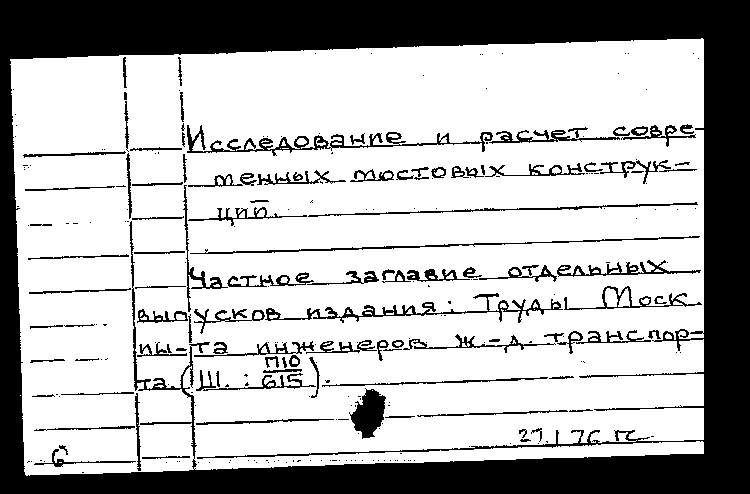 Исследование и расчет совре-
менных мостовых конструк-
ций.
Частное заглавие отдельных
выпусков издания: Труды Моск.
ин-та инженеров ж.-д. транспор-
та. (Ш. : П10/615).
27.I 76 гс
6